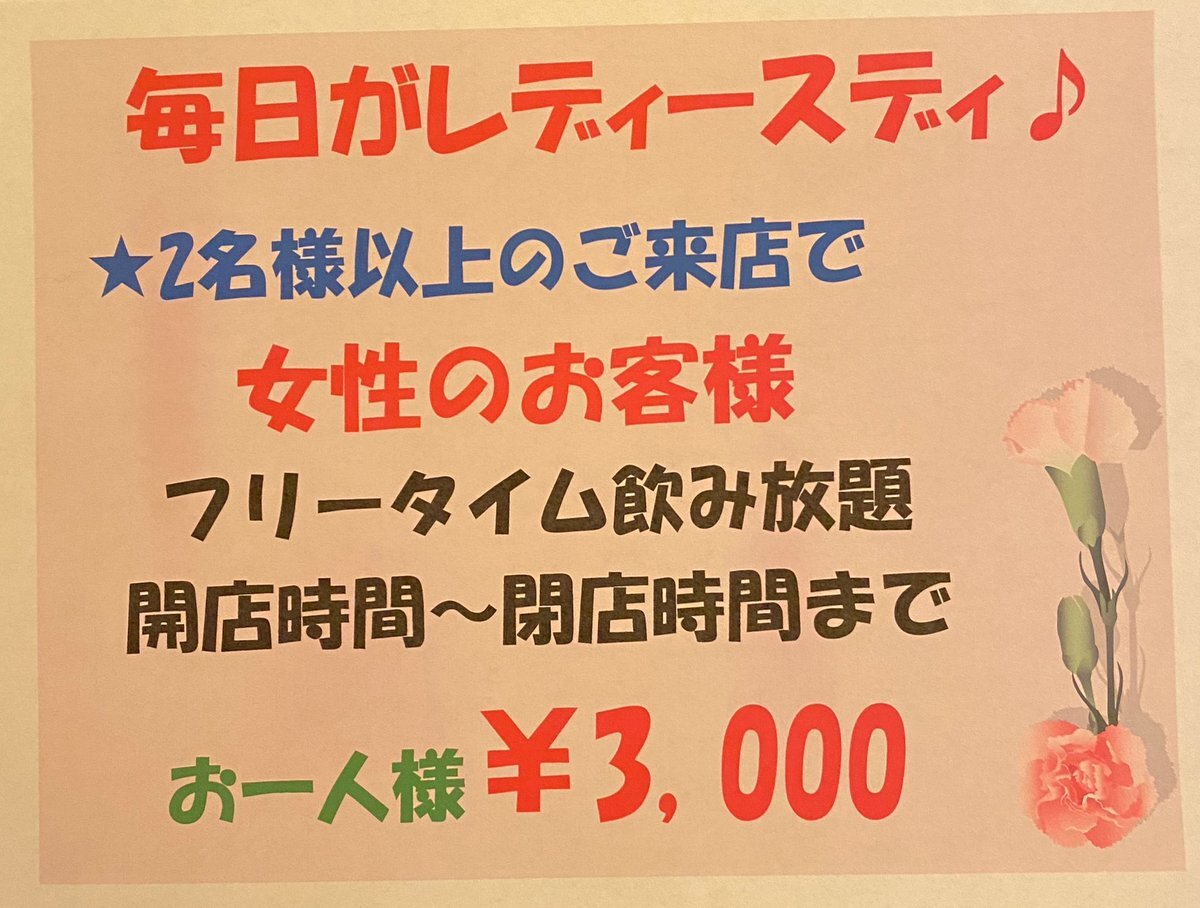 毎日がレディースディ♪
★2名様以上のご来店で
女性のお客様
フリータイム飲み放題
開店時間～閉店時間まで
お一人様¥3,000